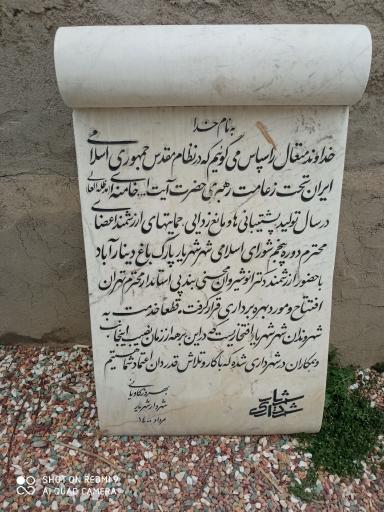 به نام خدا
خداوند متعال را سپاس می گوئیم که در نظام مقدس جمهوری اسلامی
ایران تحت زعامت رهبری حضرت آیت ا... خامنه ای مدظله العالی
در سال تولید پشتیبانی ها و مانع زدایی، حمایتهای ارزشمند اعضای
محترم دوره پنجم شورای اسلامی شهر شهریار پارک باغ دینارآباد
با حضور ارزشمند دکتر انوشیروان محسنی بندپی استاندار محترم تهران
افتتاح و مورد بهره برداری قرار گرفت، قطعاً خدمت به
شهروندان شهر شهریار افتخاریست که در این برهه از زمان نصیب اینجانب
و همکاران در شهرداری شده که با کار و تلاش قدردان اعتماد شما هستیم
بهروز کاویانی
شهردار شهریار
مرداد ۱۴۰۰
شهرداری شهریار
SHOT ON REDMI 9
AI QUAD CAMERA